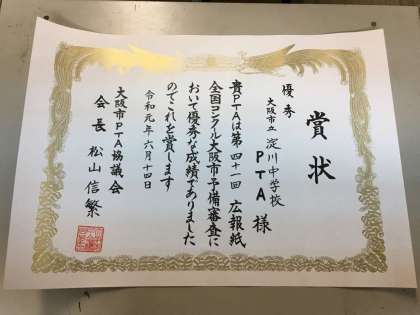 賞状
優秀
大阪市立淀川中学校
PTA様
貴PTAは第四十一回広報紙
全国コンクール大阪市予備審査に
おいて優秀な成績でありました
のでこれを賞します
令和元年六月十四日
大阪市PTA協議会
会長 松山信繁